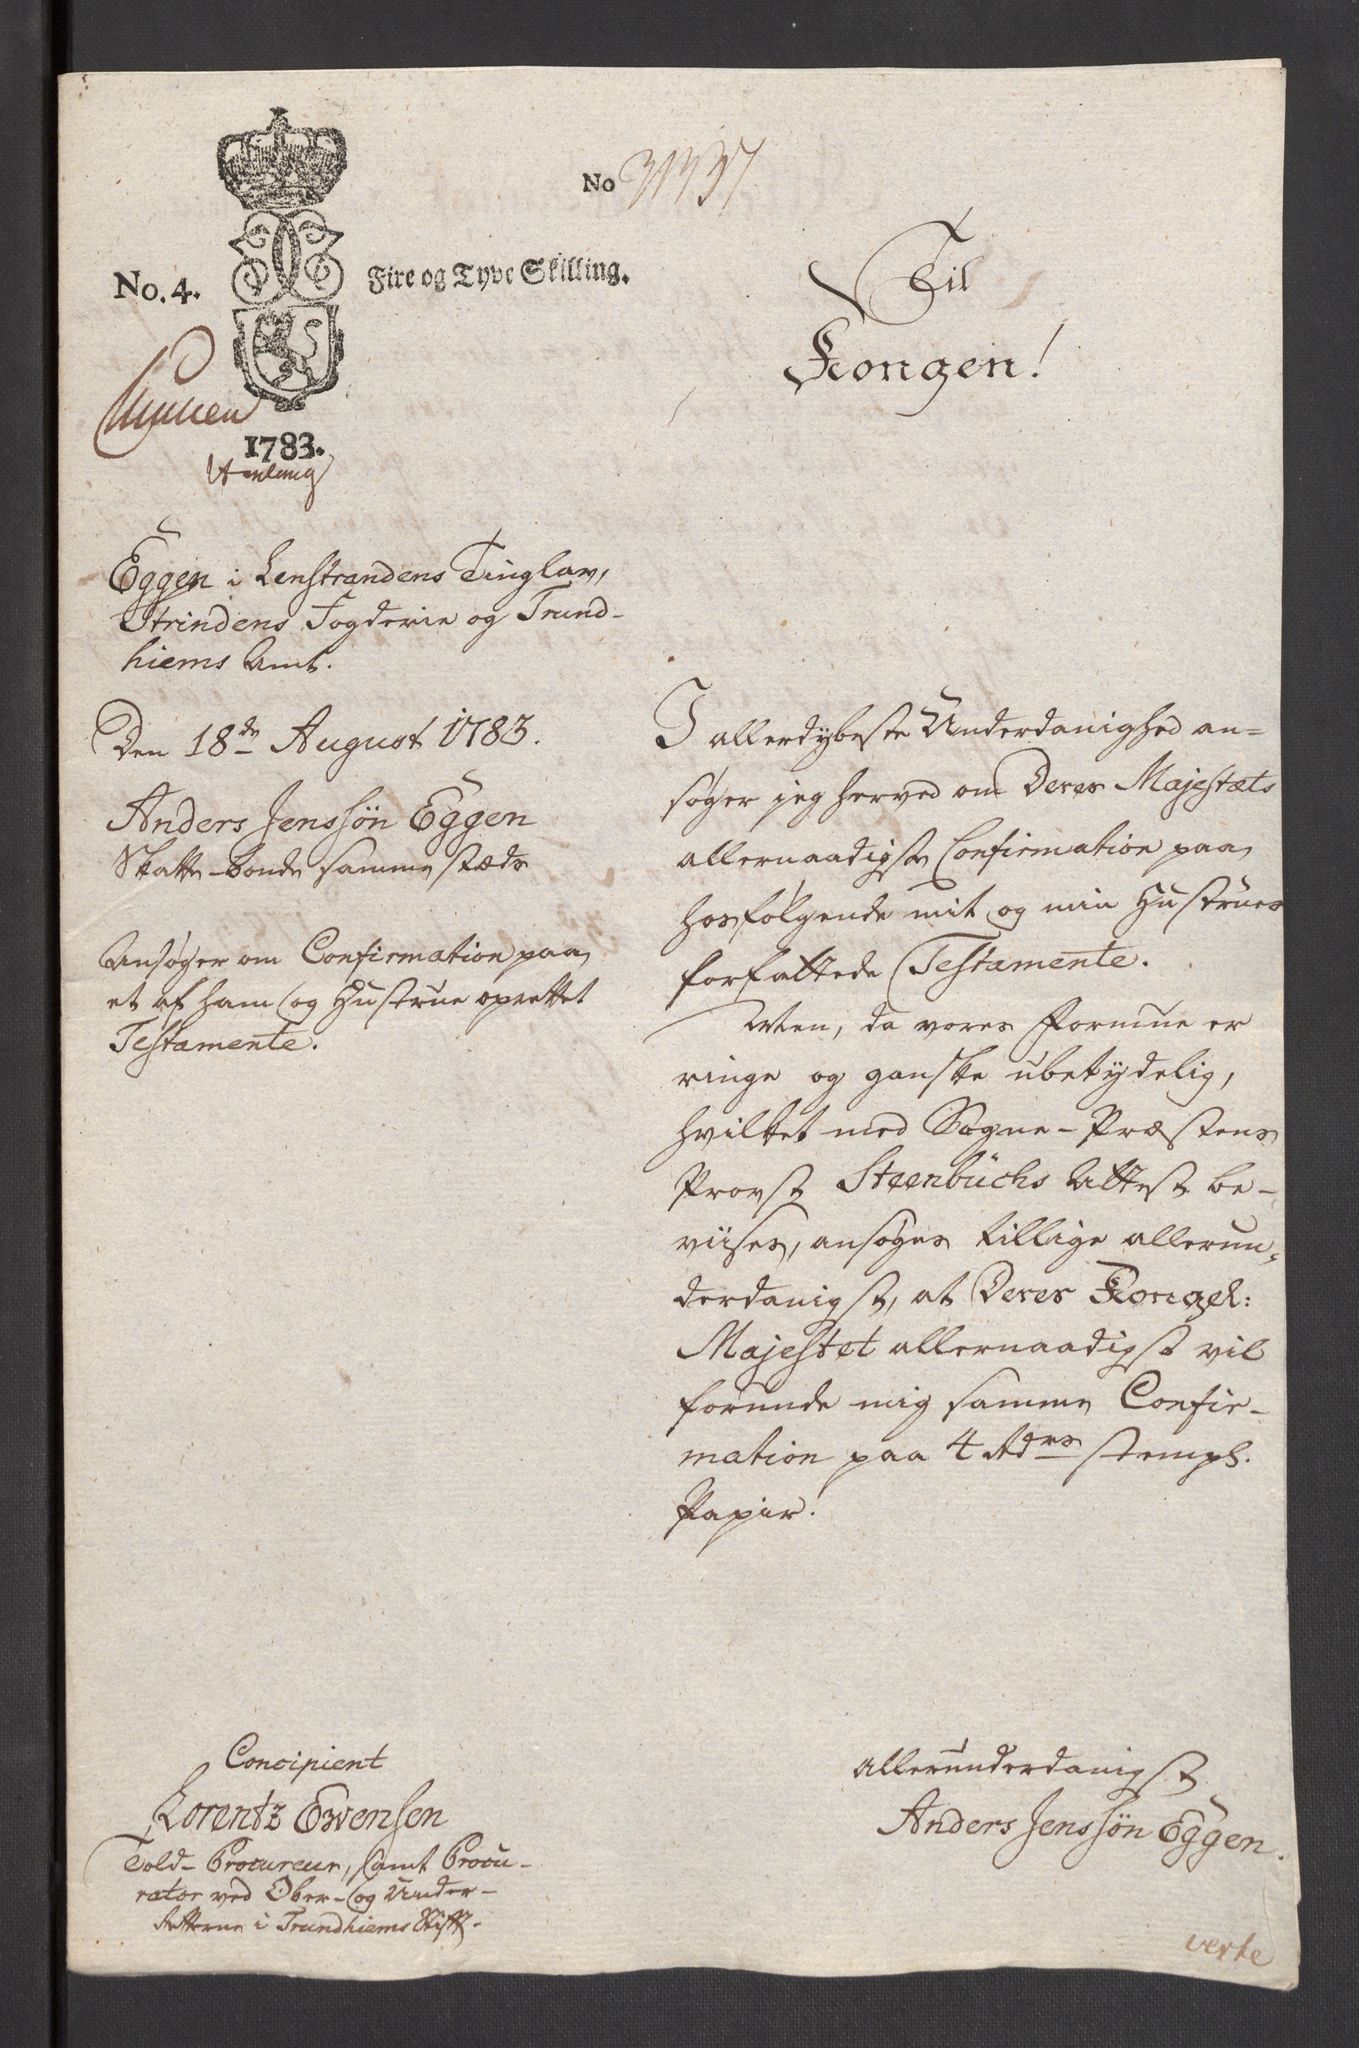 No 31337
No. 4. Fire og Tyve Skilling.
1783.
Til
Kongen!
Eggen i Lenstrandens Tinglav,
Strindens Fogderie og Trund-
hiems Amt.
Den 18de August 1783.
Anders Jenssön Eggen
Skatte-bonde sammestæds
Ansøger om Confirmation paa
et af ham og Hustrue oprettet
Testamente.
I allerdybeste Underdanighed an=
søger jeg herved om Deres Majestæts
allernaadigste Confirmation paa
hosfølgende mit og min Hustrues
forfattede Testamente.
Men, da vores Formue er
ringe og ganske ubetydelig,
hvilket med Sogne-Præstens
Provst Steenbüchs Attest be-
viises, ansøges tillige allerun-
derdanigst, at Deres Kongel:
Majestet allernaadigst vil
forunde mig samme Confir-
mation paa 4 Rdrs stempl.
Papir.
Concipient
Lorentz Ewensen
Told-Procureur, samt Procu-
rator ved Ober- og Under-
Retterne i Trundhiems Stift.
Allerunderdanigst
Anders Jenssön Eggen.
verte